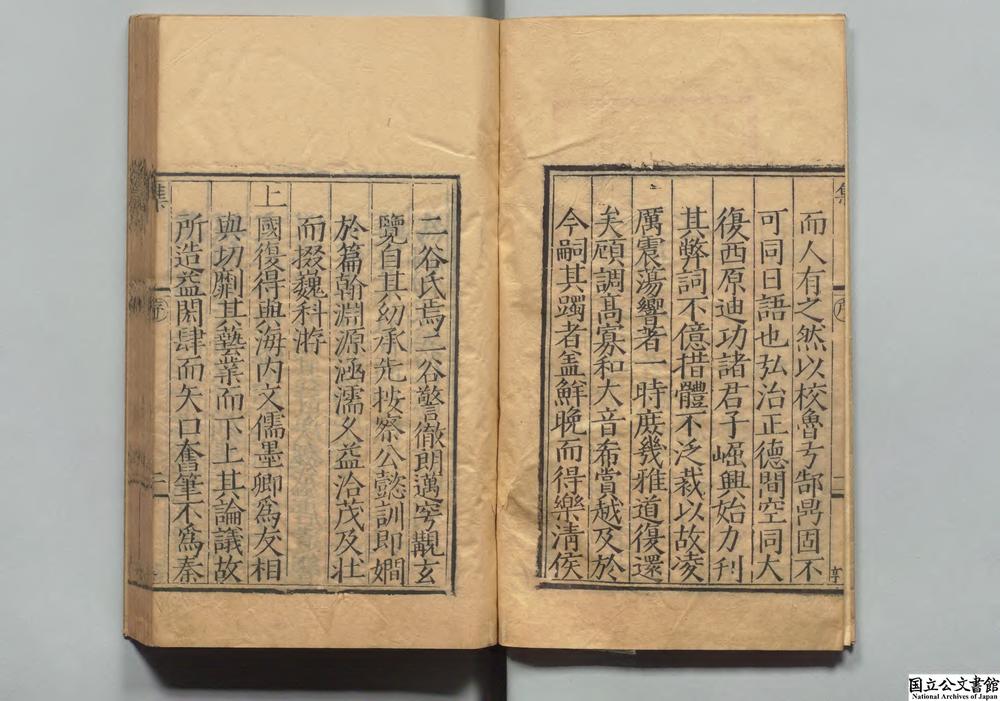 而人有之然以校魯弓郜鼎固不
可同日語也弘治正德間空同大
復西原迪功諸君子崛興始力刋
其弊詞不億措體不泛裁以故凌
厲震蕩響著一時庶幾雅道復還
矣頋調髙寡和大音希賞越及於
今嗣其躅者盖鮮晚而得樂清侯
二谷氏焉二谷警徹朗邁穹覩玄
覽自其幼承先按察公懿訓即嫺
於篇翰淵源涵濡久益洽茂及壮
而掇巍科游
上國復得與海内文儒墨卿爲友相
與切劘其藝業而下上其論議故
所造益閎肆而矢口奮筆不爲秦
集
序
二
国立公文書館
National Archives of Japan